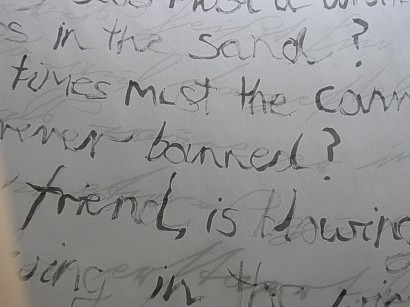 must a
s in the sand ?
times must the cann
rever banned?
friend, is blowing
wing in the win